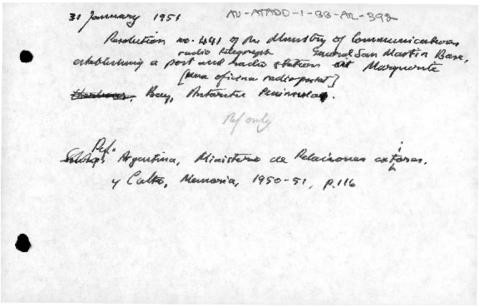 31 January 1951 AU-ATADD-1-BB-AR-392
Resolution no. 441 of the Ministry of Communications
radio telegraph General San Martin Base,
establishing a post and radio station at Marguerite
[una oficina radiopostal]
Bay, Antarctic Peninsula.
Ref only
Ref.
Argentina, Ministerio de Relaciones exteriores.
y Culto, Memoria, 1950-51, p.116